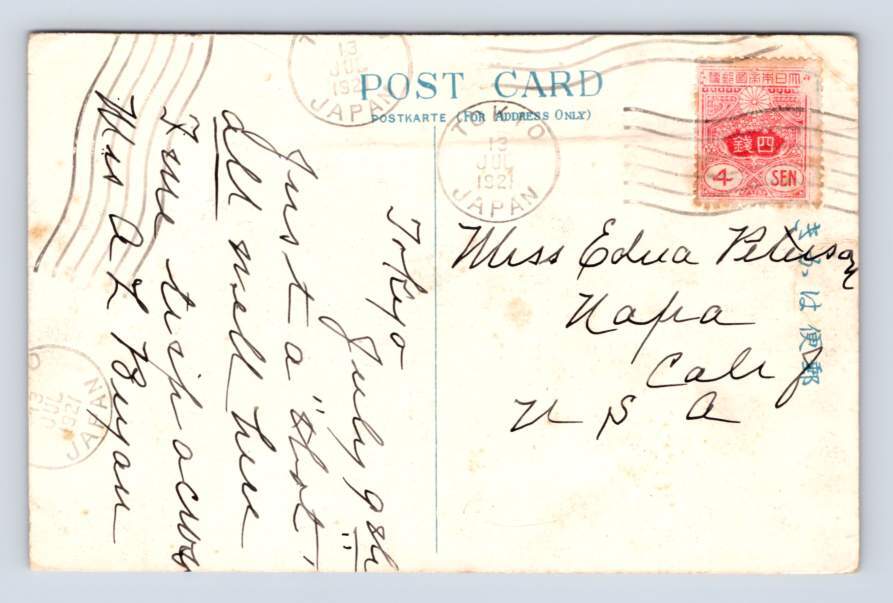 POST CARD
POSTKARTE (FOR ADDRESS ONLY)
13
JUL
1921
JAPAN
TOKYO
13
JUL
1921
JAPAN
大日本帝國郵便
四錢
4 SEN
きかは便郵
Miss Edna Peterson
Napa
Calif
U S A
Tokyo
July 9th
Just a "shot"
All well here
Fine trip across
Mrs A L Bryan
13
JUL
1921
JAPAN